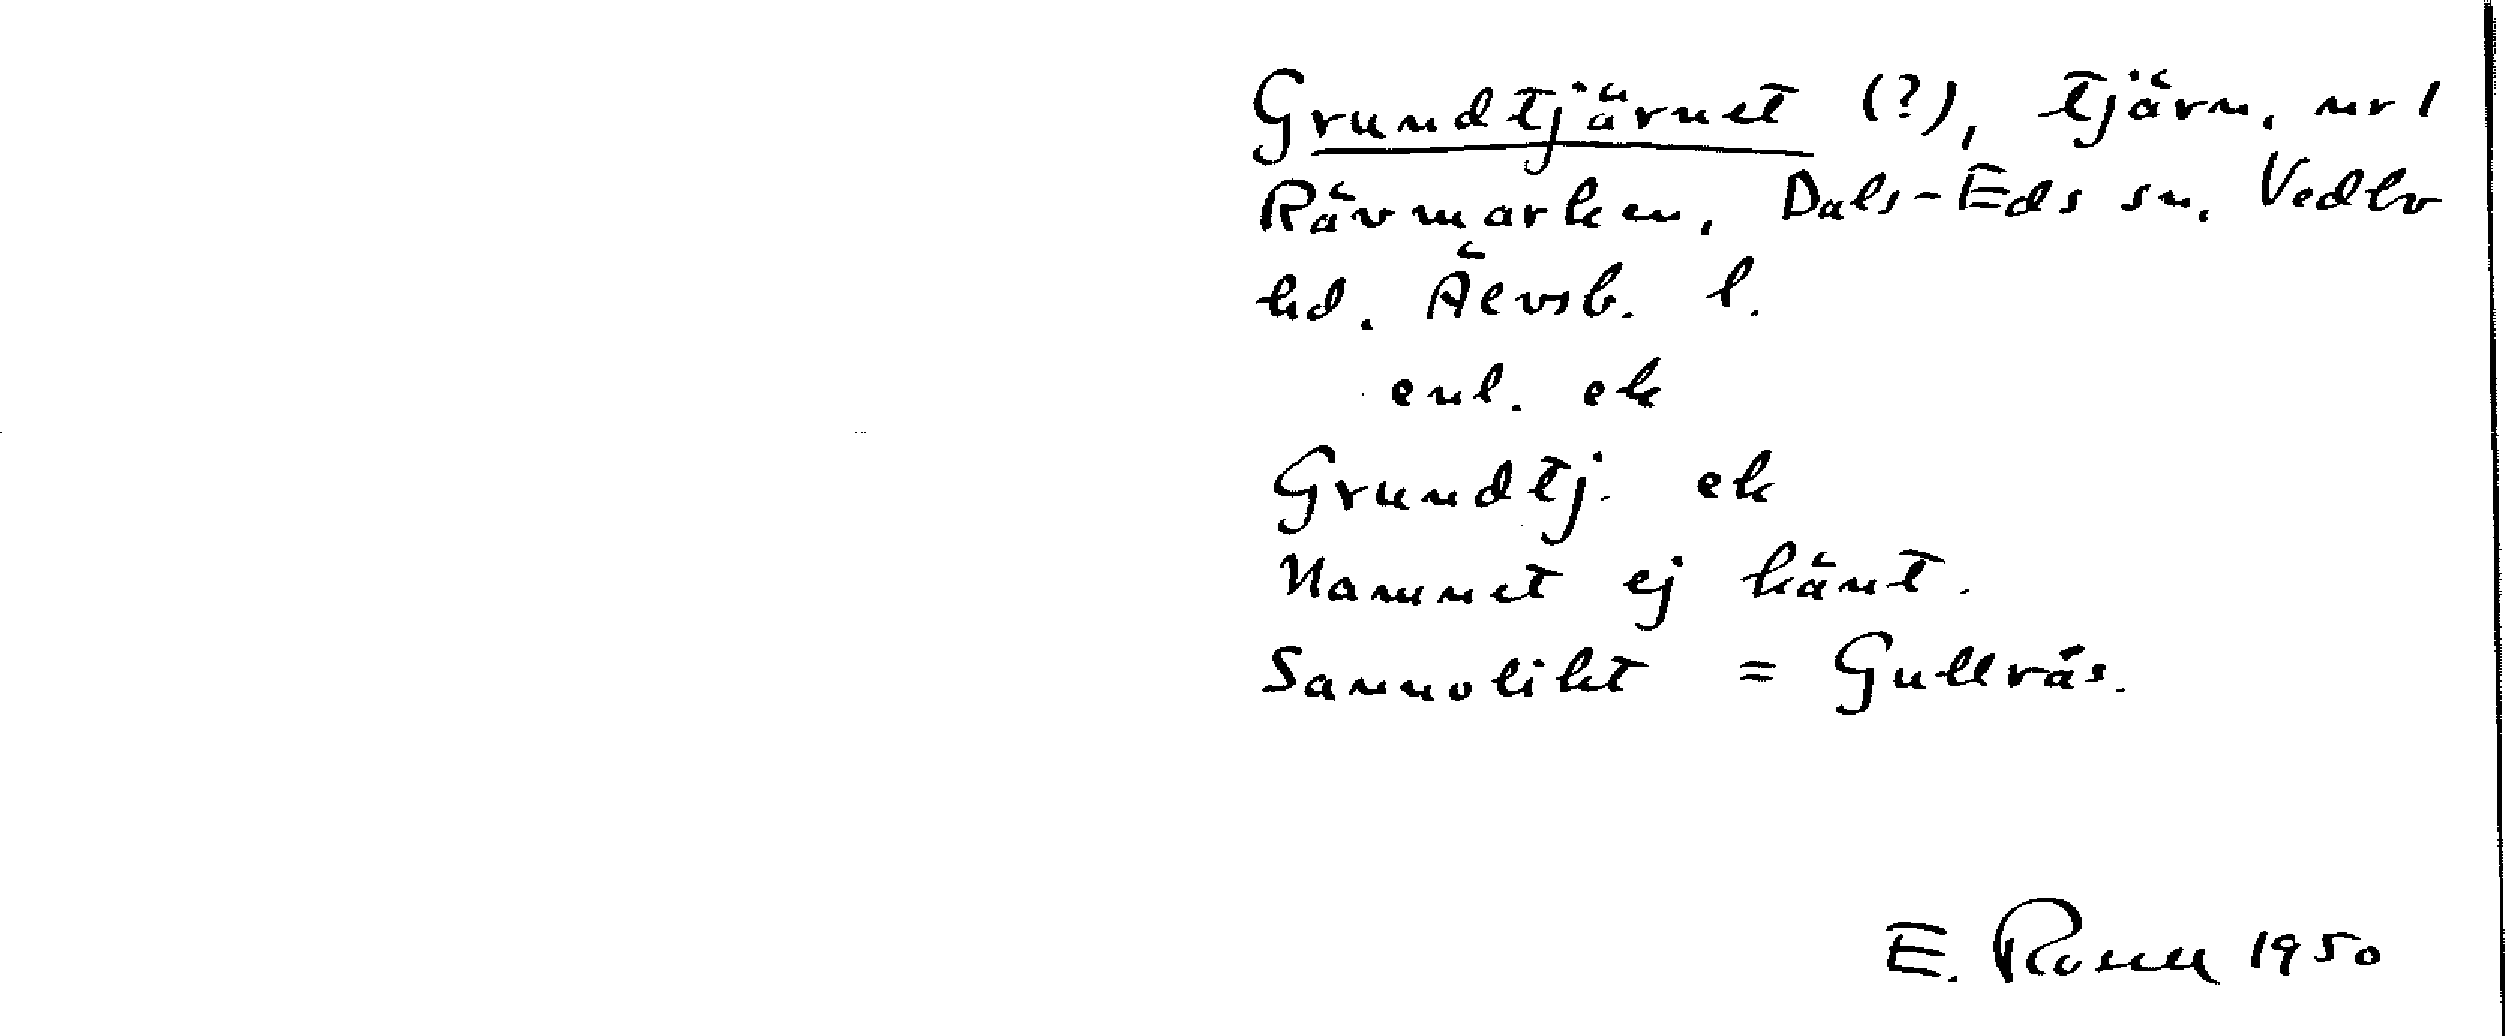 Grundtjärnet (?), tjärn, nr 1
Rävmarken, Dals-Eds sn, Vedbo
hd. Älvsb. l.
enl. ek
Grundtj. ek
Namnet ej känt.
Sannolikt = Gullrås.
E. 1950